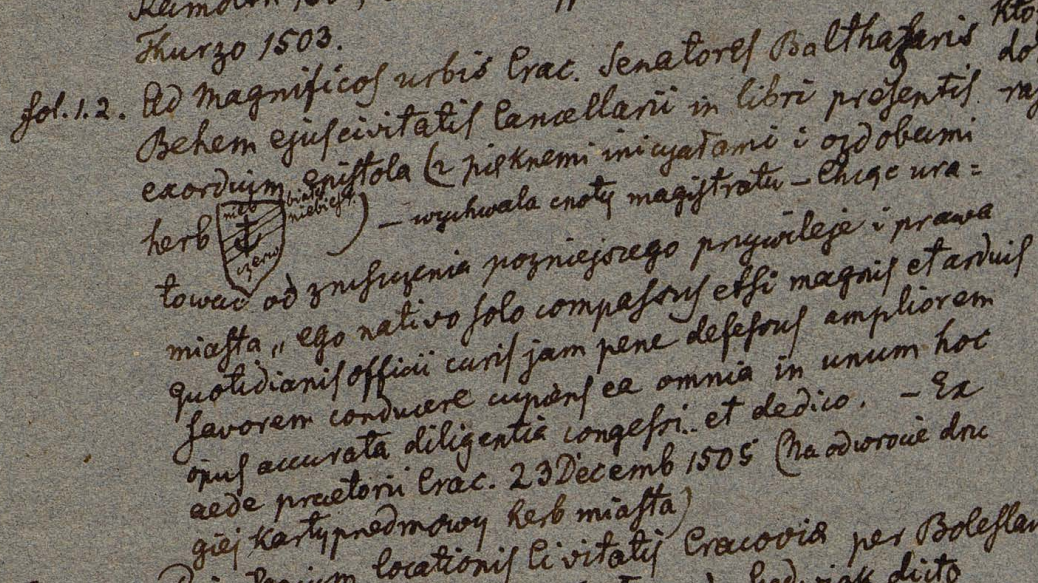 Thurzo 1503.
fol. 1. 2. Ad Magnificos urbis Crac. Senatores Balthasaris
Behem ejus civitatis Cancellarii in libri presentis
exordium epistola (z pięknemi inicyałami i ozdobami
herb nieb biały niebiesk. czerw) – wychwala cnoty magistratu – Chcąc ura=
tować od zniszczenia pozniejszego przywileje i prawa
miasta „ ego nativo solo compassus etsi magnis et arduis
quotidianis officii curis jam pene defessus ampliorem
favorem conducere cupiens ea omnia in unum hoc
opus accurata diligentia congessi.. et dedico. – Ex
aede praetorii Crac. 23 Decemb 1505 (Na odwrocie dru
giej karty przedmowy herb miasta)
locationis Civitatis Cracovia per Boleslau